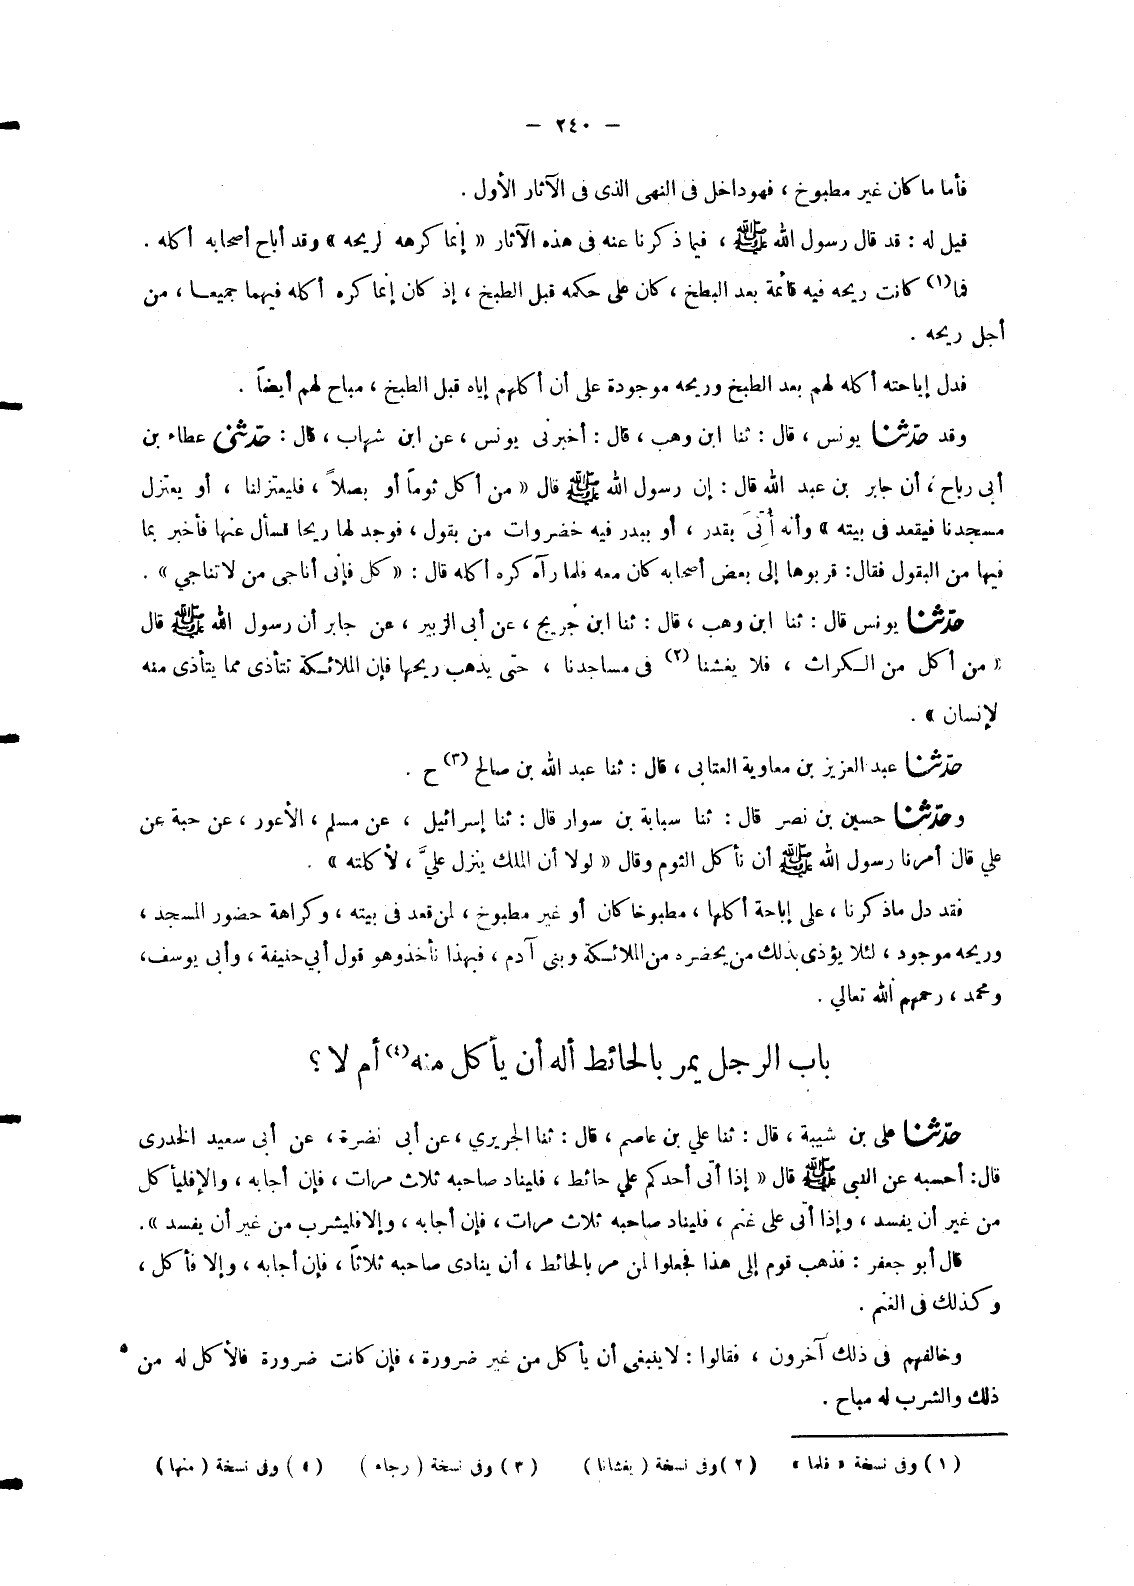 — ٢٤٠ —
فأما ما كان غير مطبوخ ، فهو داخل فى النهى الذى فى الآثار الأول .
قيل له : قد قال رسول الله ﷺ ، فيما ذكرنا عنه فى هذه الآثار « إنما كرهه لريحه » وقد أباح أصحابه أكله .
فما(١) كانت ريحه فيه قائمة بعد البطخ ، كان على حكمه قبل الطبخ ، إذ كان إنما كره أكله فيهما جميعا ، من
أجل ريحه .
فدل إباحته أكله لهم بعد الطبخ وريحه موجودة على أن أكلهم إياه قبل الطبخ ، مباح لهم أيضاً .
وقد حدّثنا يونس ، قال : ثنا ابن وهب ، قال : أخبرنى يونس ، عن ابن شهاب ، قال : حدّثنى عطاء بن
أبى رباح ، أن جابر بن عبد الله قال : إن رسول الله ﷺ قال « من أكل ثوماً أو بصلاً ، فليعتزلنا ، أو يعتزل
مسجدنا فيقعد فى بيته » وأنه أُتِىَ بقدر ، أو ببدر فيه خضروات من بقول ، فوجد لها ريحا فسأل عنها فأخبر بما
فيها من البقول فقال: قربوها إلى بعض أصحابه كان معه فلما رآه كره أكله قال : « كل فإنى أناجى من لا تناجي » .
حدّثنا يونس قال : ثنا ابن وهب ، قال : ثنا ابن جُريج ، عن أبى الزبير ، عن جابر أن رسول الله ﷺ قال
« من أكل من الكراث ، فلا يغشنا (٢) فى مساجدنا ، حتى يذهب ريحها فإن الملائكة تتأذى مما يتأذى منه
لإنسان » .
حدّثنا عبد العزيز بن معاوية العتابى ، قال : ثنا عبد الله بن صالح (٣) ح .
وحدّثنا حسين بن نصر قال : ثنا سبابة بن سوار قال : ثنا إسرائيل ، عن مسلم ، الأعور ، عن حبة عن
علي قال أمرنا رسول الله ﷺ أن نأكل الثوم وقال « لولا أن الملك ينزل عليَّ ، لأكلته » .
فقد دل ماذكرنا ، على إباحة أكلها ، مطبوخا كان أو غير مطبوخ ، لمن قعد فى بيته ، وكراهة حضور المسجد ،
وريحه موجود ، لئلا يؤذى بذلك من يحضره من الملائكة وبنى آدم ، فبهذا نأخذ وهو قول أبي حنيفة ، وأبى يوسف،
ومحمد ، رحمهم الله تعالي .
باب الرجل يمر بالحائط أله أن يأكل منه(٤) أم لا ؟
حدّثنا على بن شيبة ، قال : ثنا علي بن عاصم ، قال : ثنا الجريري ، عن أبى نضرة ، عن أبى سعيد الخدرى
قال: أحسبه عن النبى ﷺ قال « إذا أتى أحدكم علي حائط ، فليناد صاحبه ثلاث مرات ، فإن أجابه ، وإلا فليأكل
من غير أن يفسد ، وإذا أتى على غنم ، فليناد صاحبه ثلاث مرات ، فإن أجابه ، وإلا فليشرب من غير أن يفسد ».
قال أبو جعفر : فذهب قوم إلى هذا فجعلوا لمن مر بالحائط ، أن ينادى صاحبه ثلاثاً ، فإن أجابه ، وإلا فأكل ،
وكذلك فى الغنم .
وخالفهم فى ذلك آخرون ، فقالوا : لا ينبغى أن يأكل من غير ضرورة ، فإن كانت ضرورة فالأكل له من
ذلك والشرب له مباح .
(١) وفى نسخة « فلما » (٢) وفى نسخة (يغشانا) (٣) وفى نسخة (رجاء) (٤) وفى نسخة (منها)